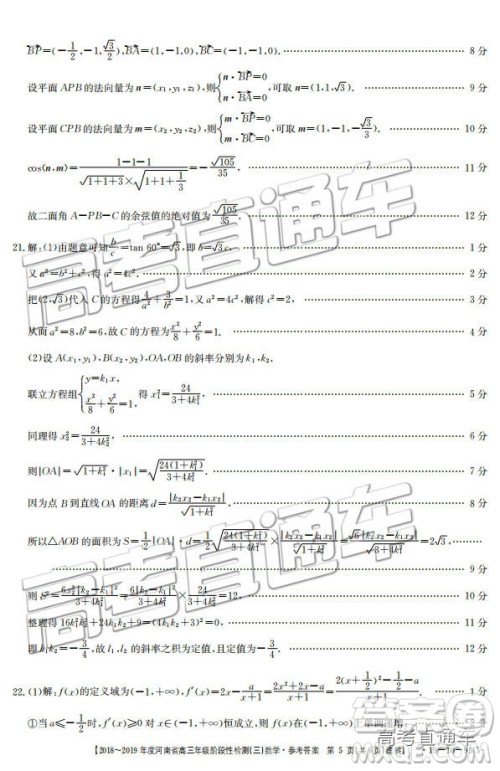 $\overrightarrow{BP}=(-\frac{1}{2},-1,\frac{\sqrt{3}}{2}),\overrightarrow{BA}=(1,-1,0),\overrightarrow{BC}=(-1,-1,0).$ 8分
设平面 APB 的法向量为 $n=(x_1,y_1,z_1)$,则$\begin{cases}n\cdot\overrightarrow{BP}=0\\n\cdot\overrightarrow{BA}=0\end{cases}$,可取 $n=(1,1,\sqrt{3})$. 9分
设平面 CPB 的法向量为 $m=(x_2,y_2,z_2)$,则 ,可取 10分
$\cos\langle n,m\rangle=\frac{1-1-1}{\sqrt{1+1+3}\times\sqrt{1+1+\frac{1}{3}}}=-\frac{\sqrt{105}}{35}.$ 11分
故二面角 A—PB—C 的余弦值的绝对值为$\frac{\sqrt{105}}{35}$. 12分
21.解:(1)由题意可知$\frac{b}{c}=\tan 60°=\sqrt{3}$,即 $b=\sqrt{3}c$. 1分
又 $a^2=b^2+c^2$,得 $a^2=4c^2$. 2分
把$(2,\sqrt{3})$代入 C 的方程得$\frac{4}{a^2}+\frac{3}{b^2}=1$,又 $a^2=4c^2$,解得 $c^2=2$, 3分
从而 $a^2=8,b^2=6$,故 C 的方程为$\frac{x^2}{8}+\frac{y^2}{6}=1$. 4分
(2)设 $A(x_1,y_1),B(x_2,y_2)$,OA,OB 的斜率分别为 $k_1,k_2$.
联立方程组$\begin{cases}y=k_1x,\\\frac{x^2}{8}+\frac{y^2}{6}=1.\end{cases}$ 得 $x_1^2=\frac{24}{3+4k_1^2}$. 5分
同理得 $x_2^2=\frac{24}{3+4k_2^2}$. 6分
则$|OA|=\sqrt{1+k_1^2}\cdot|x_1|=\sqrt{\frac{24(1+k_1^2)}{3+4k_1^2}}$. 7分
因为点 B 到直线 OA 的距离 $d=\frac{|k_2x_2-k_1x_2|}{\sqrt{1+k_1^2}}$. 8分
所以△AOB 的面积为 $S=\frac{1}{2}|OA|\cdot d=\frac{1}{2}\sqrt{\frac{24(1+k_1^2)}{3+4k_1^2}}\times\frac{|k_2x_2-k_1x_2|}{\sqrt{1+k_1^2}}=\frac{\sqrt{6}|k_2x_2-k_1x_2|}{\sqrt{3+4k_1^2}}=2\sqrt{3}$,
9分
则 $S^2=$ $=12$, 10分
整理得 $16k_1^2k_2^2+24k_1k_2+9=(4k_1k_2+3)^2=0$, 11分
即 $k_1k_2=-\frac{3}{4}$,故 $l_1,l_2$ 的斜率之积为定值,且定值为$-\frac{3}{4}$. 12分
22.(1)解:$f(x)$的定义域为$(-1,+\infty)$,$f'(x)=2x-\frac{a}{x+1}=\frac{2x^2+2x-a}{x+1}=\frac{2(x+\frac{1}{2})^2-\frac{1}{2}-a}{x+1}$. 1分
①当 $a\leq-\frac{1}{2}$时,$f'(x)\geq0$ 对 $x\in(-1,+\infty)$恒成立,则 $f(x)$在$(-1,+\infty)$上单调递增. 2分
【2018~2019 年度河南省高三年级阶段性检测(三)数学·参考答案 第 5 页
高考直通车
高考直通车
高考直通车
高考直通车